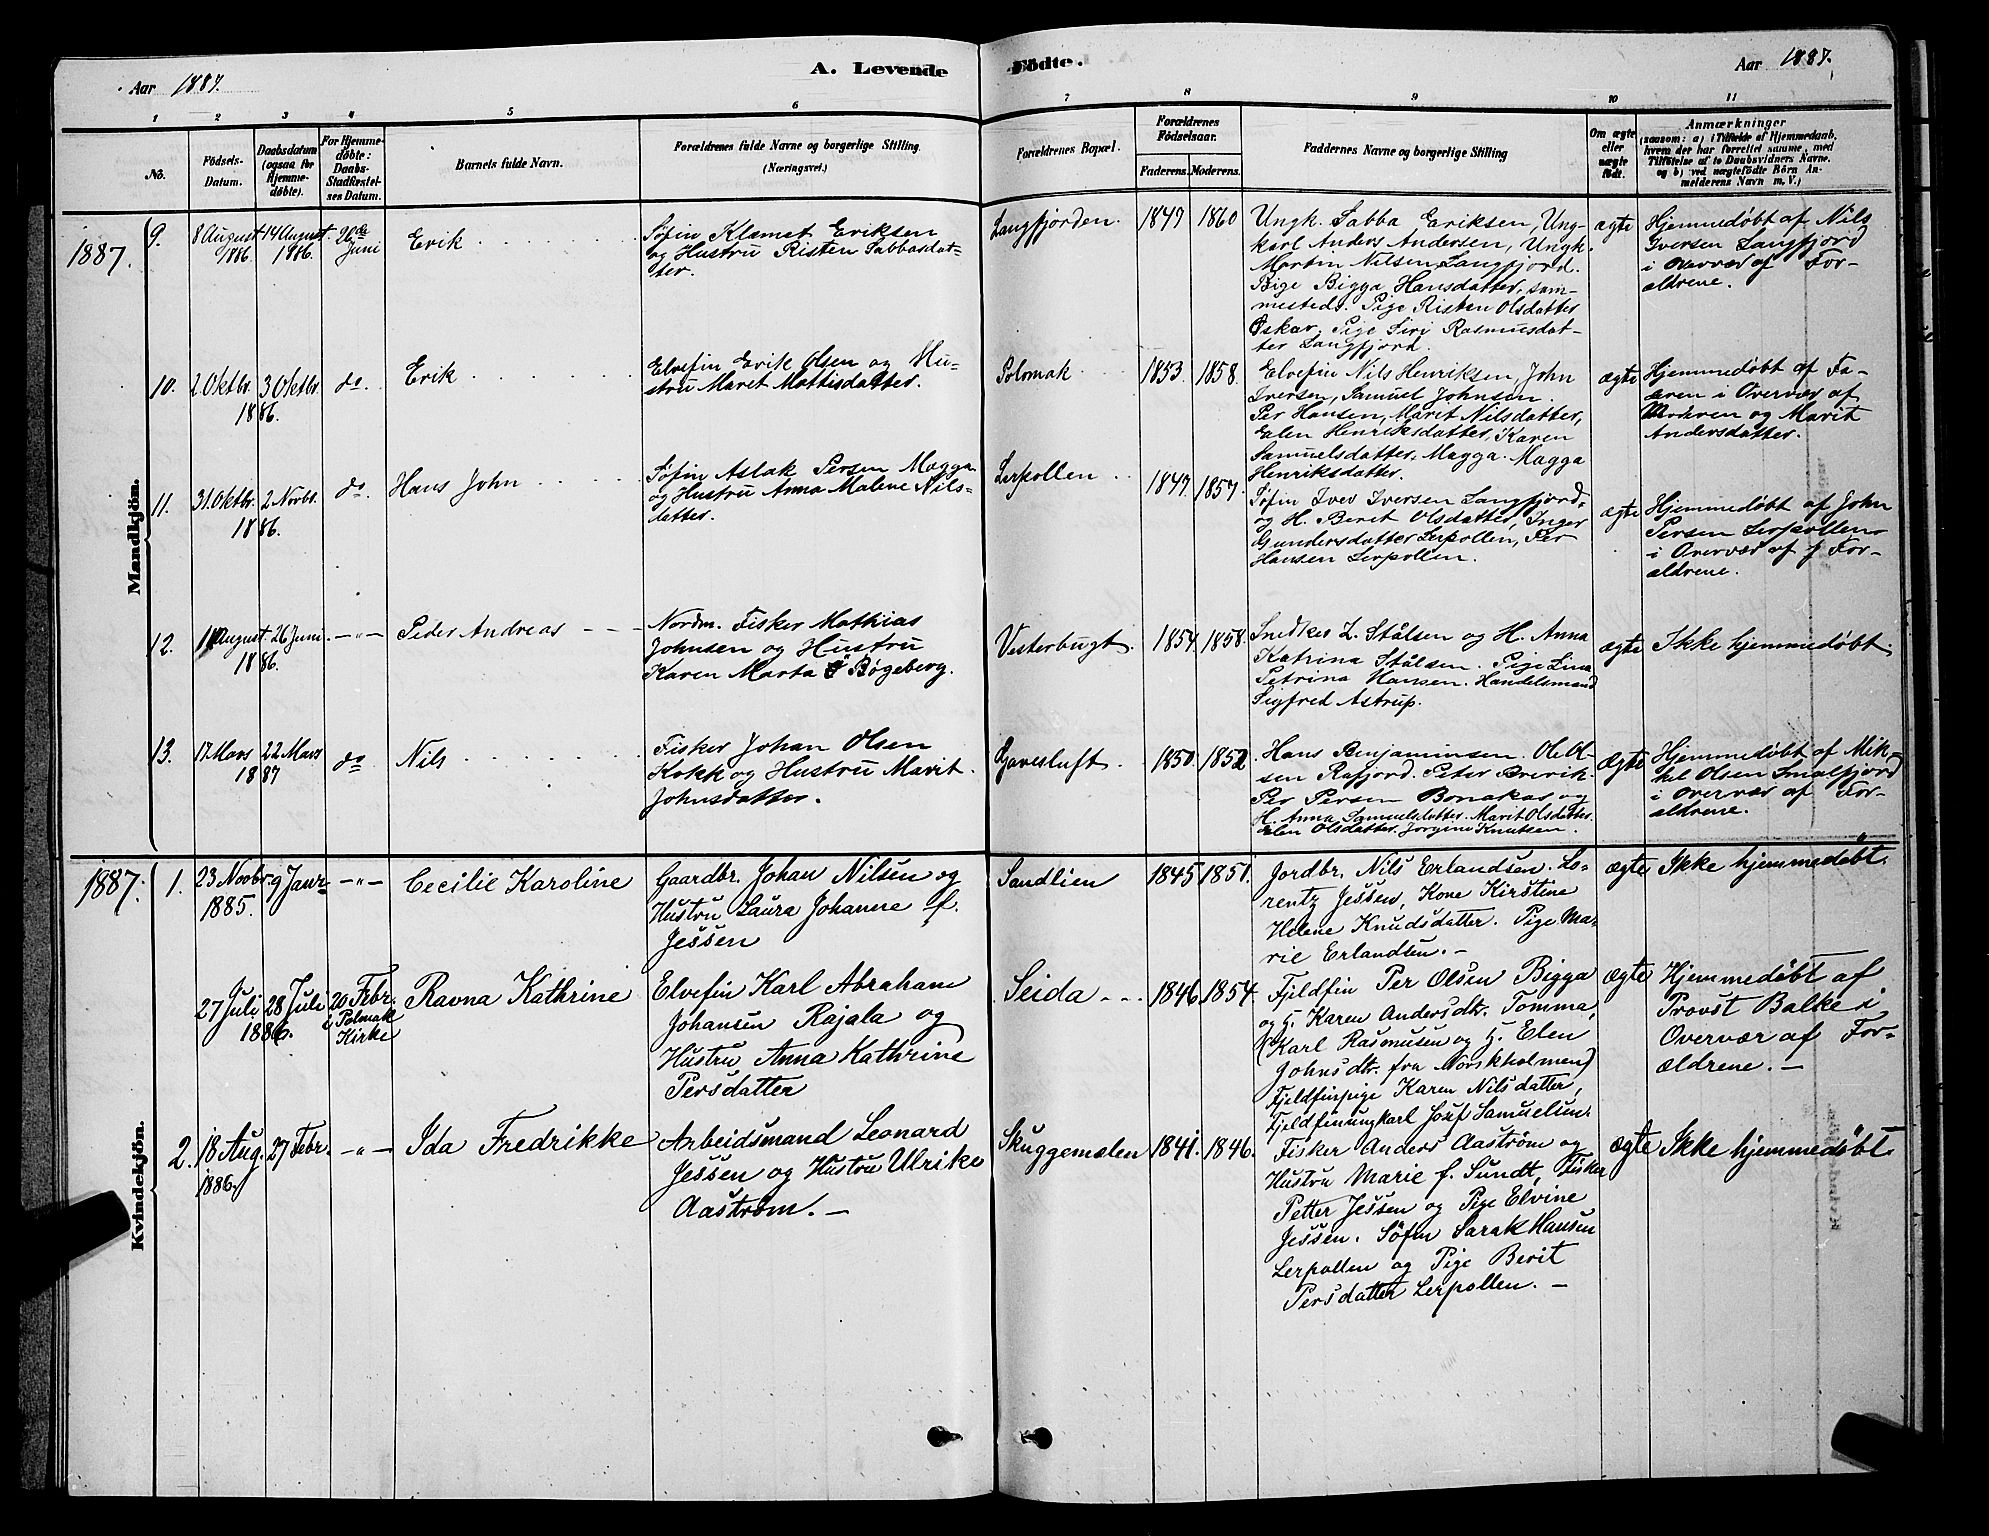 Aar 1887.
A. Levende Födte.
Aar 1887.
1 2 3 4 5 6 7 8 9 10 11
No.
Födsels-
Datum.
Daabsdatum
(ogsaa for
Hjemme-
döbte).
For Hjemme-
døbte:
Daabs-
Stadfæstel-
ses Datum.
Barnets fulde Navn.
Forældrenes fulde Navne og borgerlige Stilling.
(Næringsvei.)
Forældrenes Bopæl.
Forældrenes
Födselsaar.
Faderens. Moderens.
Faddernes Navne og borgerlige Stilling
Om ægte
eller
uægte
födt.
Anmærkninger
(saasom: a) i Tilfælde af Hjemmedaab,
hvem der har forrettet samme, med
Tilföielse af to Daabsvidners Navne.
og b) ved uægtefödte Börn An-
melderens Navn m. V.)
Mandkjön.
1887.
9.
8 August
1886.
14 August
1886.
26de
Juni
Erik
Søfin Klemet Eriksen
og Hustru Risten Sabbasdat-
ter.
Langfjorden.
1847
1860
Ungk. Sabba Eriksen, Ung-
karl Anders Andersen, Ungk.
Martin Nilsen Langfjord.
Pige Bigga Hansdatter, sam-
mesteds. Pige Risten Olsdatter
Oskar, Pige Siri Rasmusdat-
ter Langfjord.
ægte
Hjemmedøbt af Nils
Iversen Langfjord
i Overvær af For-
ældrene.
10.
2 Oktbr.
3 Oktbr.
1886.
do.
Erik
Elvefin Erik Olsen og Hu-
stru Maret Mattisdatter.
Polmak
1853.
1858.
Elvefin Nils Henriksen, John
Iversen, Samuel Johnsen.
Per Hansen, Marit Nilsdatter,
Elen Henriksdatter, Karen
Samuelsdatter, Magga. Magga
Henriksdatter.
ægte
Hjemmedøbt af Fa-
deren i Overvær af
Moderen og Marit
Andersdatter.
11.
31 Oktbr.
2 Novbr.
1886.
do.
Hans John
Søfin Aslak Persen Magga
og Hustru Anna Malene Nils-
datter.
Lerpollen
1847.
1857.
Søfin Iver Iversen Langfjord,
og H. Berit Olsdatter, Inger
Gundersdatter Lerpollen, Per
Hansen Lerpollen.
ægte
Hjemmedøbt af John
Persen Lerpollen
i Overvær af For-
ældrene.
12.
11 August
26 Juni
1886.
Peder Andreas
Nordm. Fisker Mathias
Johnsen og Hustru
Karen Marta Bøgeberg.
Vesterbugt.
1854.
1858.
Snedker L. Stålsen og H. Anna
Katrina Stålsen. Pige Lina
Petrina Hansen. Handelsmand
Sigfred Astrup.
ægte
Ikke hjemmedøbt.
13.
17 Mars
22 Mars
1887
do
Nils
Fisker Johan Olsen
Kokk og Hustru Marit
Johnsdatter.
Gavesluft.
1850.
1852
Hans Benjaminsen. Ole Ol-
sen Rafjord. Peter Brevik.
Per Persen Bonakas og
H. Anna Samuelsdatter. Marit Olsdatter.
Elen Olsdatter. Jorgine Knutsen.
ægte
Hjemmedøbt af Mik-
kel Olsen Smalfjord
i Overvær af For-
ældrene.
Kvindekjön.
1887.
1.
23 Novbr.
1885.
9 Janr.
Cecilie Karoline
Gaardbr. Johan Nilsen og
Hustru Laura Johanne f.
Jessen
Sandlien
1845
1851.
Jordbr. Nils Erlandsen. Lo-
rentz Jessen, Kone Kirstine
Helene Knudsdatter. Pige Ma-
rie Erlandsen. –
ægte
Ikke hjemmedøbt.
27 Juli
28 Juli
1886.
20 Febr.
i Polmak
Kirke
Ravna Kathrine
Elvefin Karl Abraham
Johansen Rajala og
Hustru Anna Kathrine
Persdatter
Seida
1846.
1854.
Fjeldfin Per Olsen Bigga
og H. Karen Andersdtr. Tomma,
(Karl Rasmusen og H. Elen
Johnsdtr. fra Norskholmen)
Fjeldfinpige Karen Nilsdatter,
Fjeldfinungkarl Josef Samuelsen.
ægte
Hjemmedøbt af
Provst Balke i
Overvær af For-
ældrene. –
2.
18 Aug.
1886.
27 Febr.
Ida Fredrikke
Arbeidsmand Leonard
Jessen og Hustru Ulrike
Aaström. –
Skuggemælen
1841.
1846.
Fisker Anders Aaström og
Hustru Marie f. Sundt, Fisker
Petter Jessen og Pige Elvine
Jessen. Söfin Sarak Hansen
Lerpollen og Pige Berit
Persdatter Lerpollen. –
ægte
Ikke hjemmedøbt.